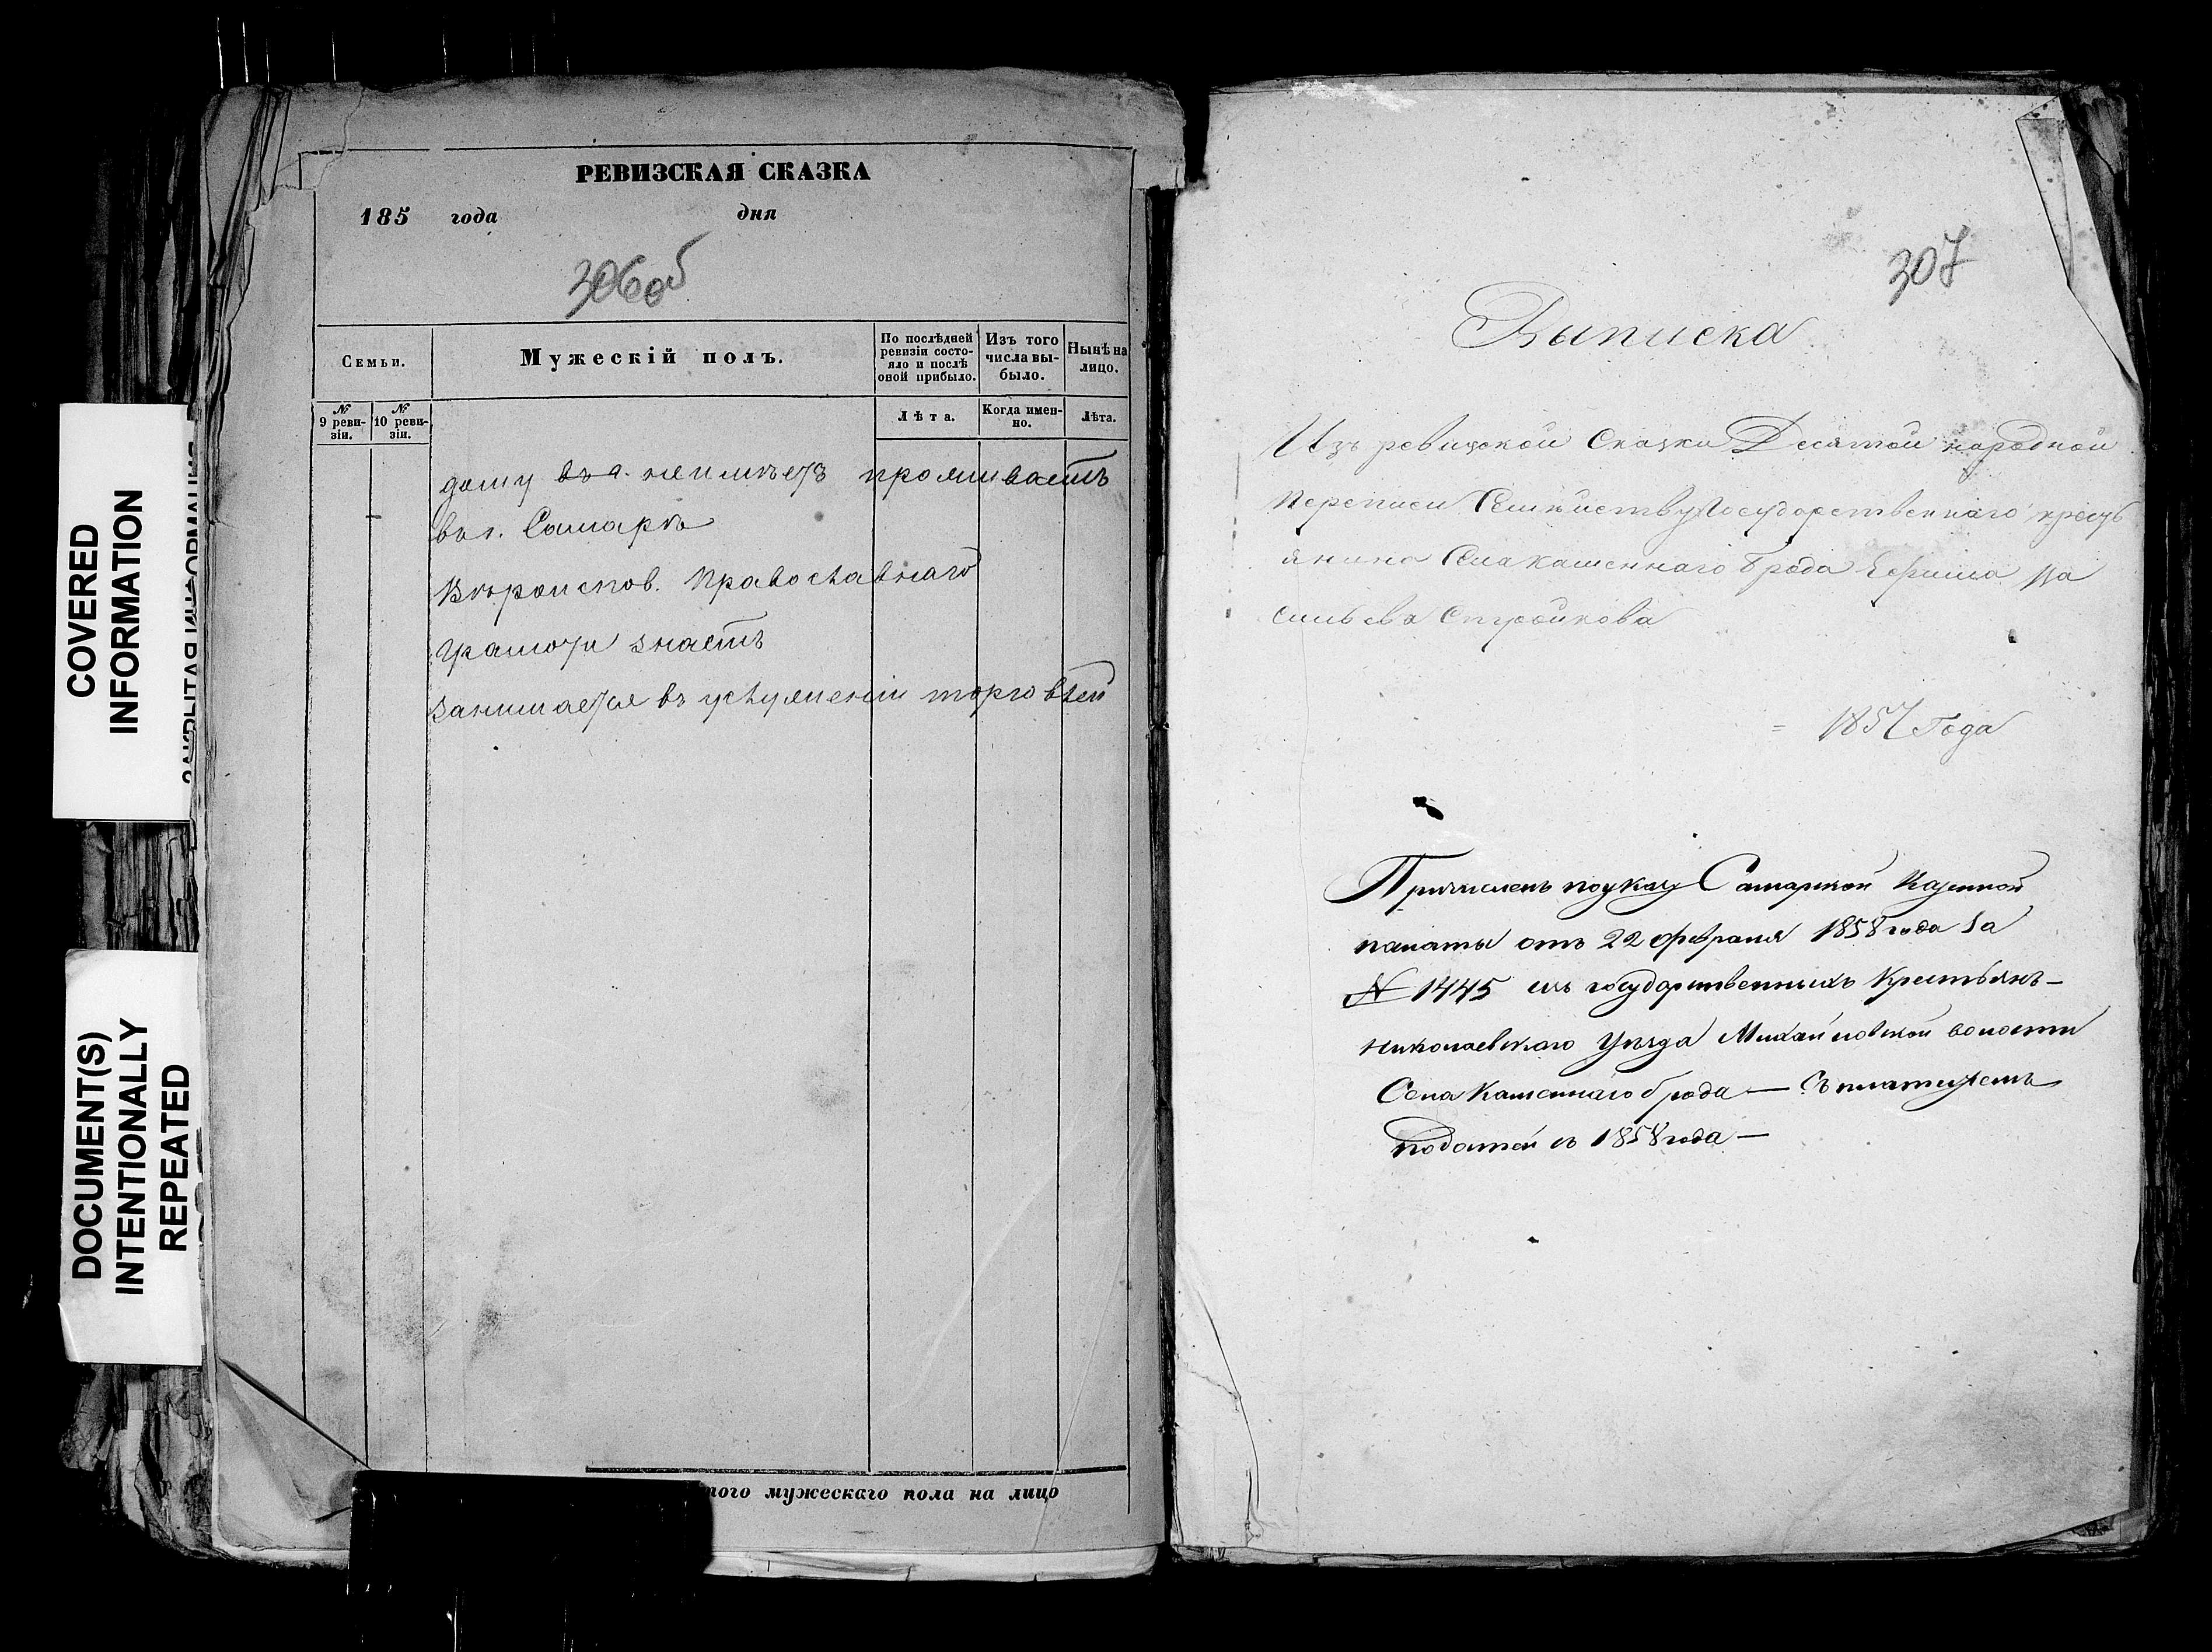 COVERED
INFORMATION
DOCUMENT(S)
INTENTIONALLY
REPEATED
РЕВИЗСКАЯ СКАЗКА
185 года дня
306об
Семьи.
Мужескій полъ.
По послѣдней
ревизіи состо-
яло и послѣ
оной прибыло.
Изъ того
числа вы-
было.
Нынѣ на
лицо.
№
9 реви-
зіи.
№
10 реви-
зіи.
Лѣта.
Когда имен-
но.
Лѣта.
дому въ г. неимѣетъ проживаетъ
въ г. Самарѣ
Вѣроиспов. Православнаго
Грамоти знаетъ
Занимается въ услуженіи торговлей
того мужескаго пола на лицо
307
Выписка
Изъ ревизской Сказки Десятой народной
Переписи Семѣйству Государственнаго кресть
янина Села каменнаго брода Ефима Ва
сильева
1857 Года
Причисленъ по указу Самарской Казенной
палаты отъ 22 февраля 1858 года за
№ 1445 изъ государственныхъ Крестьянъ-
Николаевскаго Уѣзда Михайловской волости
Села Каменнаго брода — Съ платежемъ
податей съ 1858 года —